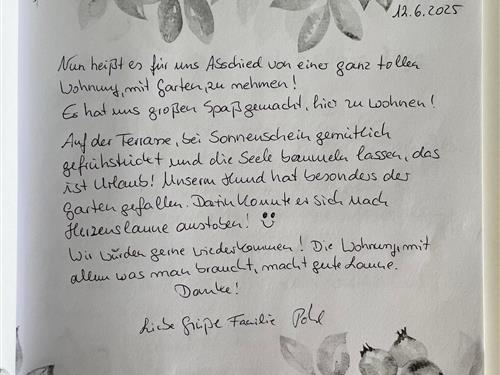 12.6.2025
Nun heißt es für uns Abschied von einer ganz tollen
Wohnung, mit Garten, zu nehmen!
Es hat uns großen Spaß gemacht, hier zu wohnen!
Auf der Terrasse, bei Sonnenschein gemütlich
gefrühstückt und die Seele baumeln lassen, das
ist Urlaub! Unserm Hund hat besonders der
Garten gefallen. Darin konnte er sich nach
Herzenslaune austoben!
Wir würden gerne wiederkommen! Die Wohnung, mit
allem was man braucht, macht gute Laune.
Danke!
Liebe Grüße Familie Pohl